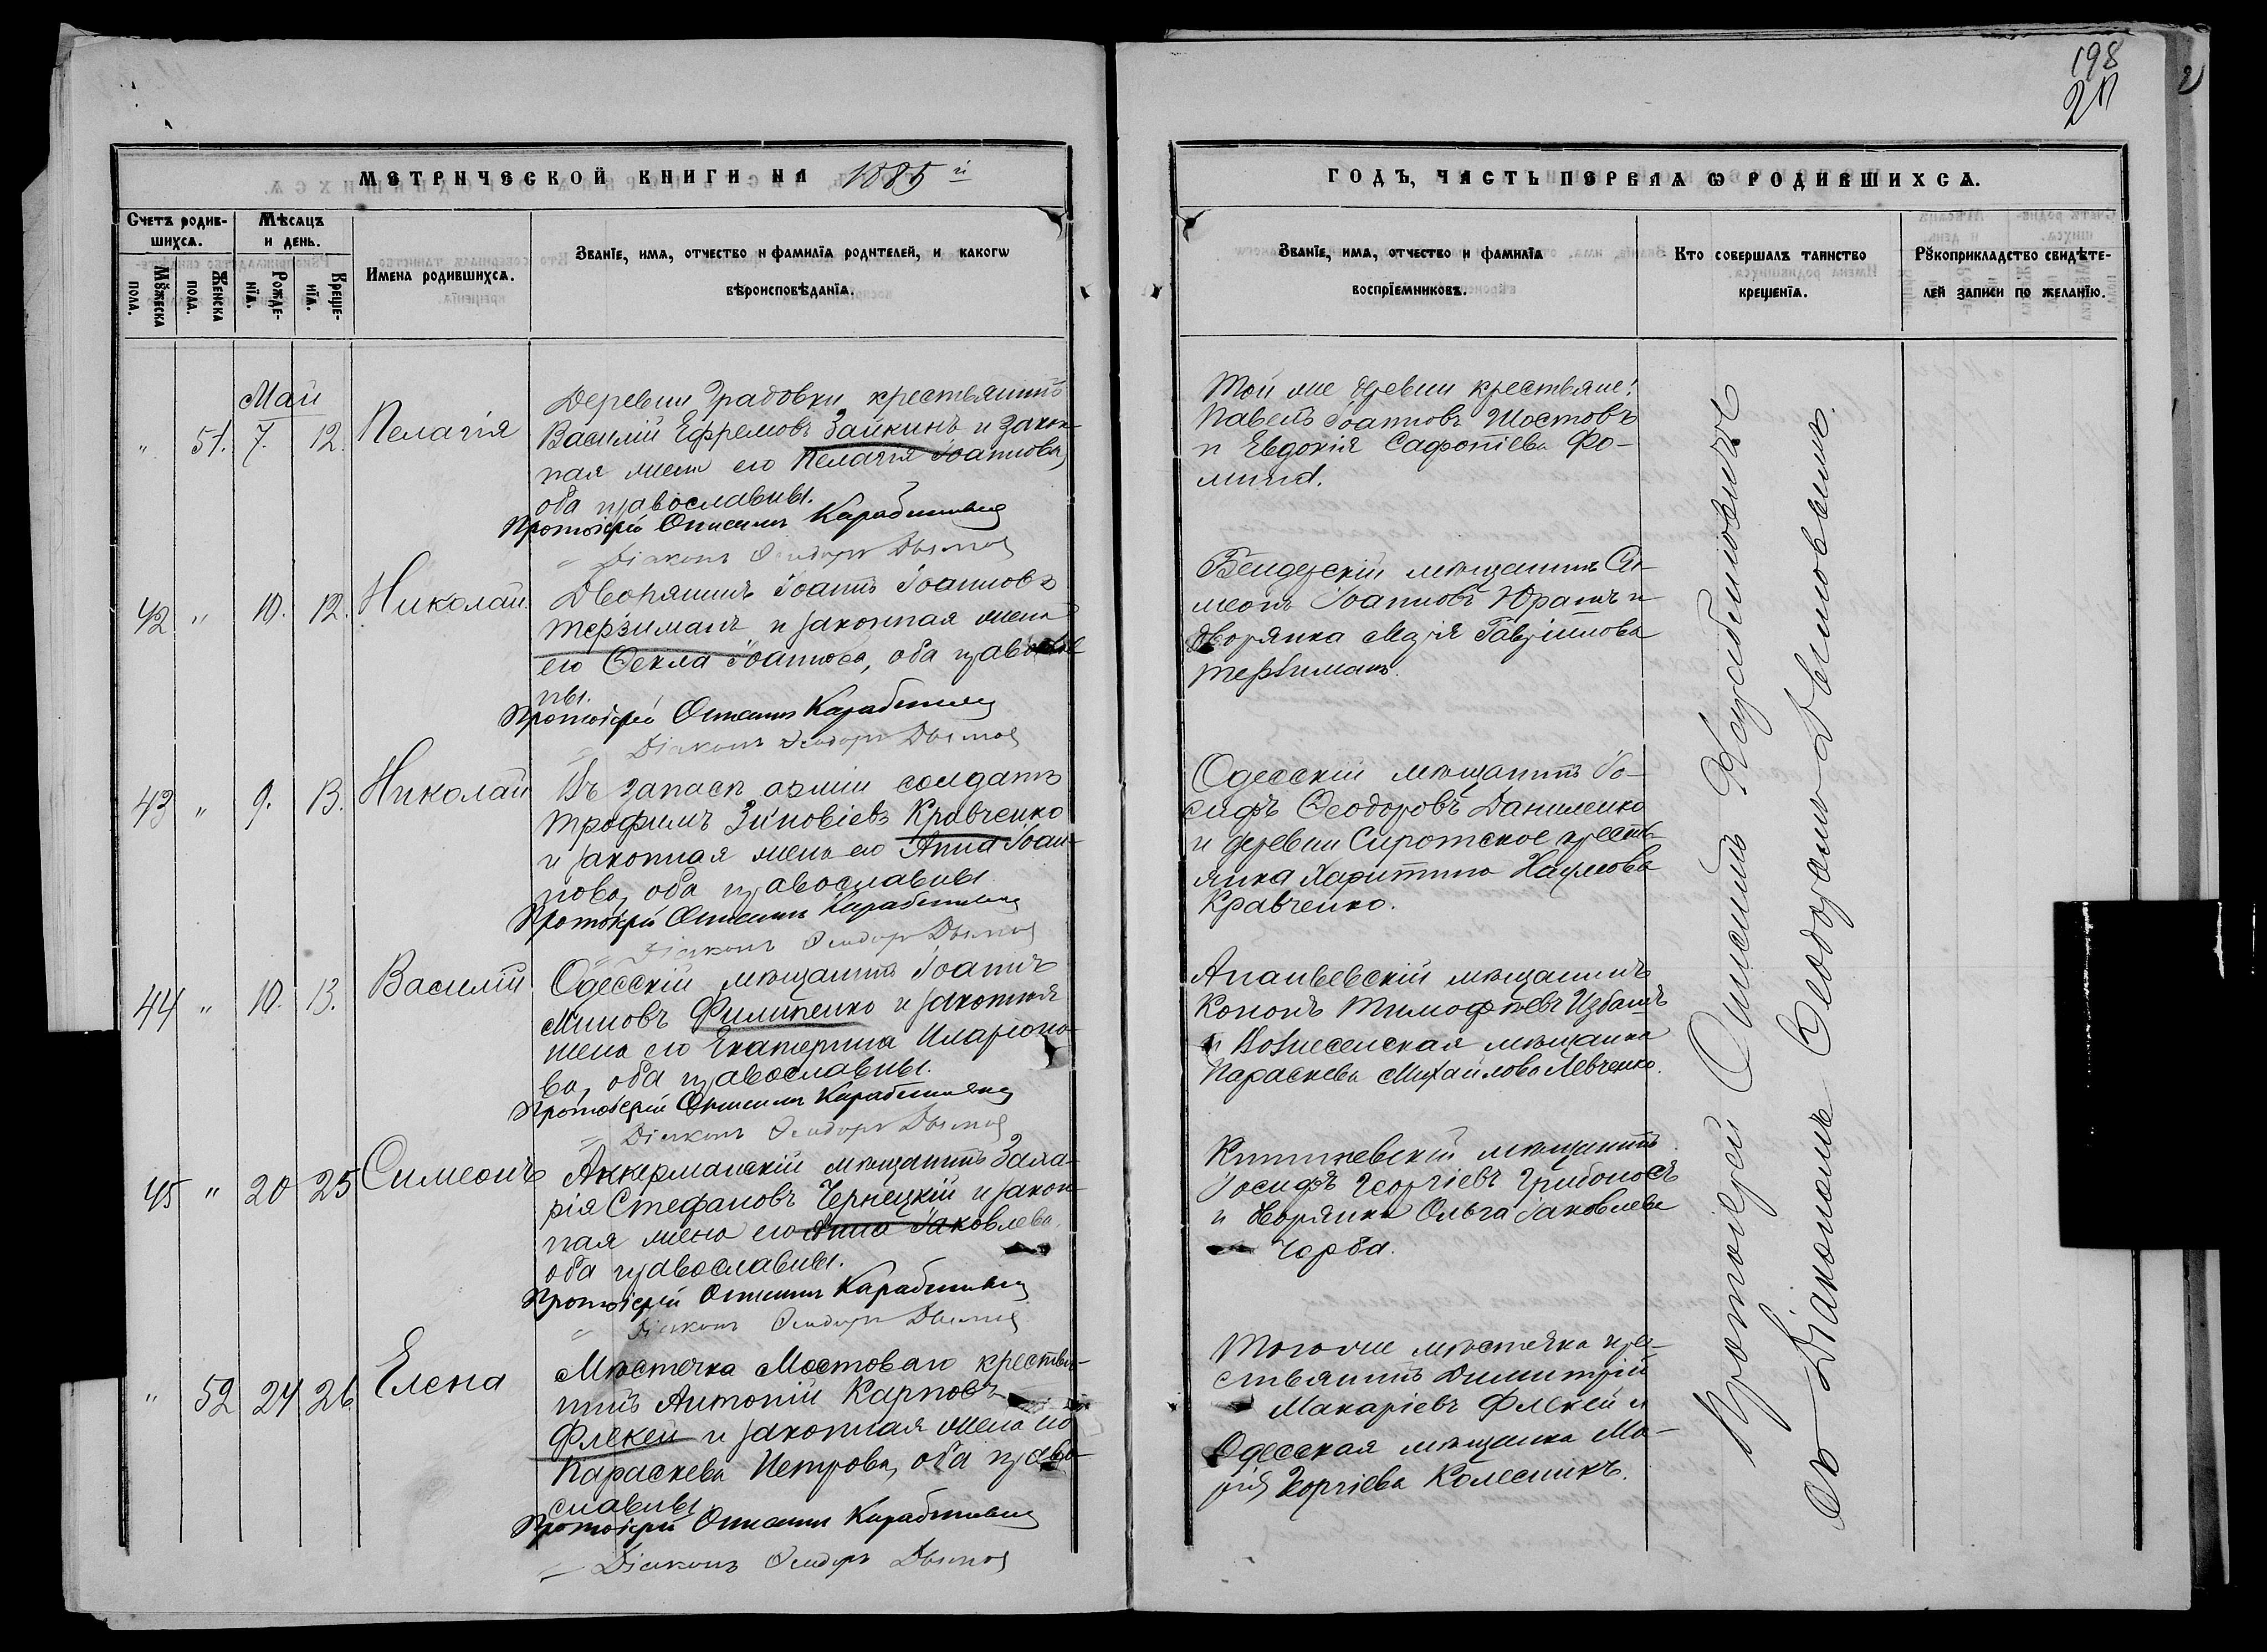 198
2П
МЕТРИЧЕСКОЙ КНИГИ НА 1885й
ГОДЪ, ЧАСТЬ ПЕРВАЯ Ѡ РОДИВШИХСѦ.
Счетъ родив-
шихсѧ.
Мѣсяцъ
и день.
Мꙋжеска
пола.
Женска
пола.
Рожде-
нїѧ.
Креще-
нїѧ.
Имена родившихсѧ.
Званїе, имѧ, отчество и фамилїѧ родителей, и какогѡ
вѣроисповѣданїѧ.
Званїе, имѧ, отчество и фамилїѧ
воспрїемниковъ.
Кто совершалъ таинство
крещенїѧ.
Рꙋкоприкладство свидѣте-
лей записи по желанїю.
Май
" 51. 7. 12. Пелагія
Деревни Градовки крестьянинъ
Василій Ефремовъ Заикинъ и закон-
ная жена его Пелагія Іоаннова,
оба православны.
Протоіерей Онисимъ
Діаконъ Ѳеодоръ
Той же деревни крестьяне:
Павелъ Іоанновъ Шостовъ
и Евдокія Сафоніева Фо-
мина.
42 " 10. 12. Николай
Дворянинъ Іоаннъ Іоанновъ
Терзиманъ и законная жена
его Ѳекла Іоаннова, оба православ
ны.
Протоіерей Онисимъ
Діаконъ Ѳеодоръ
Бендерскій мѣщанинъ Си-
меонъ Іоанновъ Юрашъ и
дворянка Марія Гавріилова
Терзиманъ.
43 " 9. 13. Николай
Въ запасѣ арміи солдатъ
Трофимъ Зиновіевъ Кравченко
и законная жена его Анна Іоан-
нова, оба православны
Протоіерей Онисимъ
Діаконъ Ѳеодоръ
Одесскій мѣщанинъ Іо-
сифъ Ѳеодоровъ Даниленко
и деревни Сиротское кресть-
янка Харитина Наумова
Кравченко.
44 " 10. 13. Василій
Одесскій мѣщанинъ Іоаннъ
Миновъ Филипенко и законная
жена его Екатерина Иларіоно-
ва, оба православны.
Протоіерей Онисимъ
Діаконъ Ѳеодоръ
Ананьевскій мѣщанинъ
Кононъ Тимофѣевъ Избашъ
и Вознесенская мѣщанка
Параскева Михайлова Левченко.
45 " 20 25 Симеонъ
Аккерманскій мѣщанинъ Заха-
рія Стефановъ Чернецкій и закон-
ная жена его Анна Іаковлева,
оба православны.
Протоіерей Онисимъ
Діаконъ Ѳеодоръ
Кишиневскій мѣщанинъ
Іосифъ Георгіевъ Грибоносъ
и дворянка Ольга Іаковлева
Чорба.
" 52 24 26. Елена
Мѣстечка Мостоваго крестья-
нинъ Антоній Карповъ
Флекей и законная жена его
Параскева Петрова, оба право-
славны.
Протоіерей Онисимъ
Діаконъ Ѳеодоръ
Того же мѣстечка кре-
стьянинъ Димитрій
Макаріевъ Флекей и
Одесская мѣщанка Ма-
рія Георгіева Колесникъ.
Протоіерей Онисимъ
съ Діакономъ Ѳеодоромъ